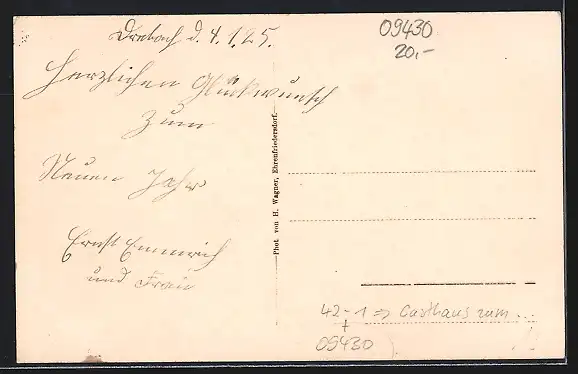 Drebach d. 4.1.25.
Herzlichen Glückwunsch
zum
Neuen Jahr
Ernst Emmrich
und Frau
Phot. von H. Wagner, Ehrenfriedersdorf.
09430
20,-
42-1 => Gasthaus zum ...
+
09430